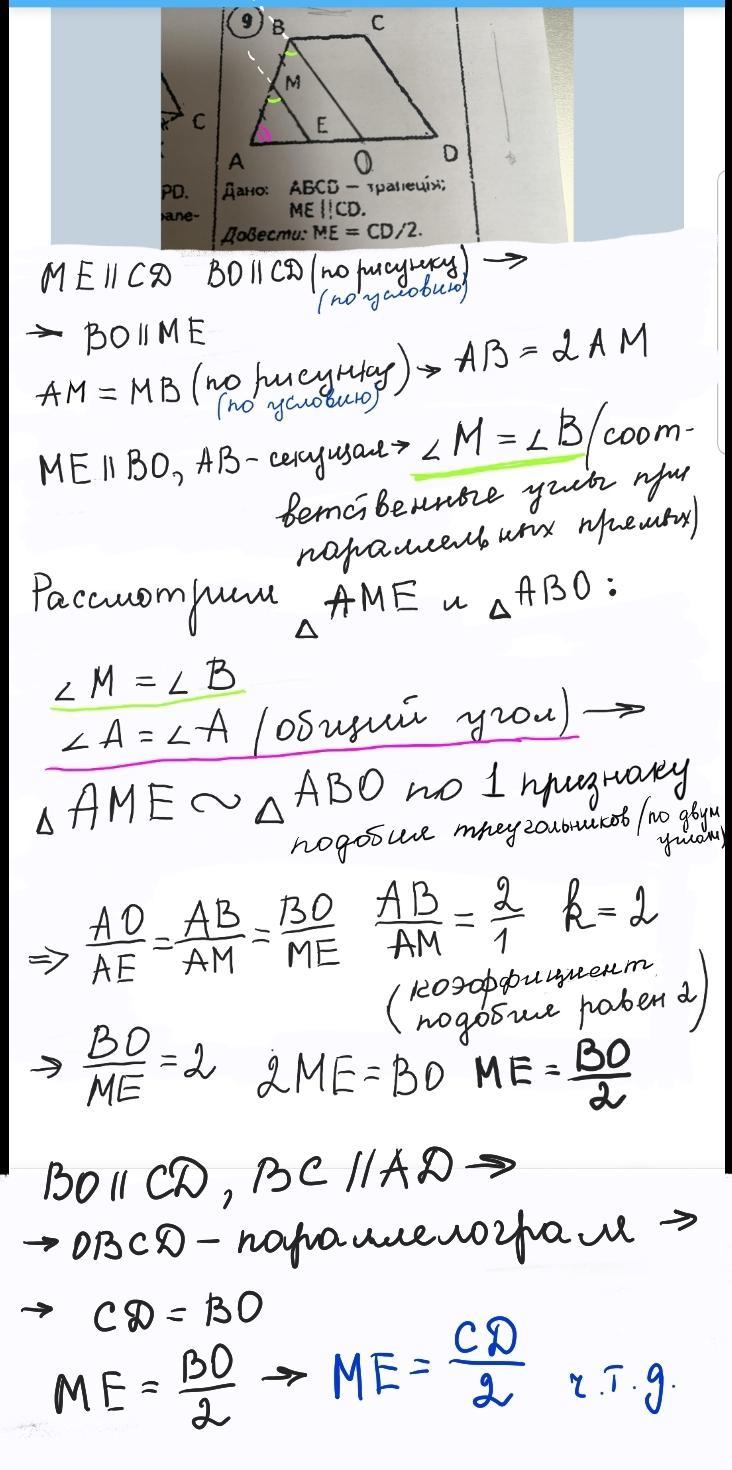 9
B
C
M
C
E
A
O
D
PD.
Дано: АБСD – трапеція;
але-
ME||CD.
Довести: ME = CD/2.
ME || CD BO || CD (по рисунку) →
(по условию)
→ BO || ME
AM = MB (по рисунку) → AB = 2AM
(по условию)
ME || BO, AB – секущая → ∠M = ∠B (соот-
ветственные углы при
параллельных прямых)
Рассмотрим △AME и △ABO :
∠M = ∠B
∠A = ∠A (общий угол) →
△AME ~ △ABO по 1 признаку
подобия треугольников (по двум
углам)
⇒ AO/AE = AB/AM = BO/ME AB/AM = 2/1 k = 2
(коэффициент
подобия равен 2)
→ BO/ME = 2 2ME = BO ME = BO/2
BO || CD, BC // AD →
→ OBCD – параллелограм →
→ CD = BO
ME = BO/2 → ME = CD/2 ч.т.д.